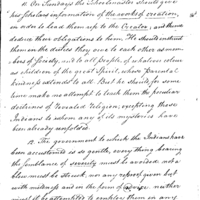 2. On Sundays the Schoolmaster should give
his scholars information of the works of creation,
in order to lead them up to the Creator, and thence
deduce their obligations to him. He should instruct
them in the duties they owe to each other as mem-
bers of society, and to all people, of whatever colour
as children of the great Spirit, whose parental
kindness extends to all. But he should for some
time make no attempt to teach them the peculiar
doctrines of revealed religion; excepting those
Indians to whom any of its mysteries have
been already unfolded.
2. The government to which the Indians have
been accustomed is so gentle, every thing bearing
the semblance of severity must be avoided. not a
blow must be struck, nor any reproof given but
with mildness and in the form of advice. neither
must it be attempted to employ them in any